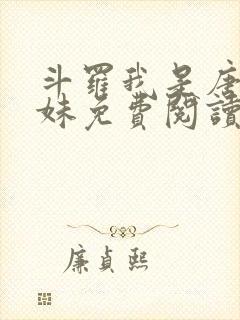 斗羅我是唐
妹免費閱讀
廉貞熙